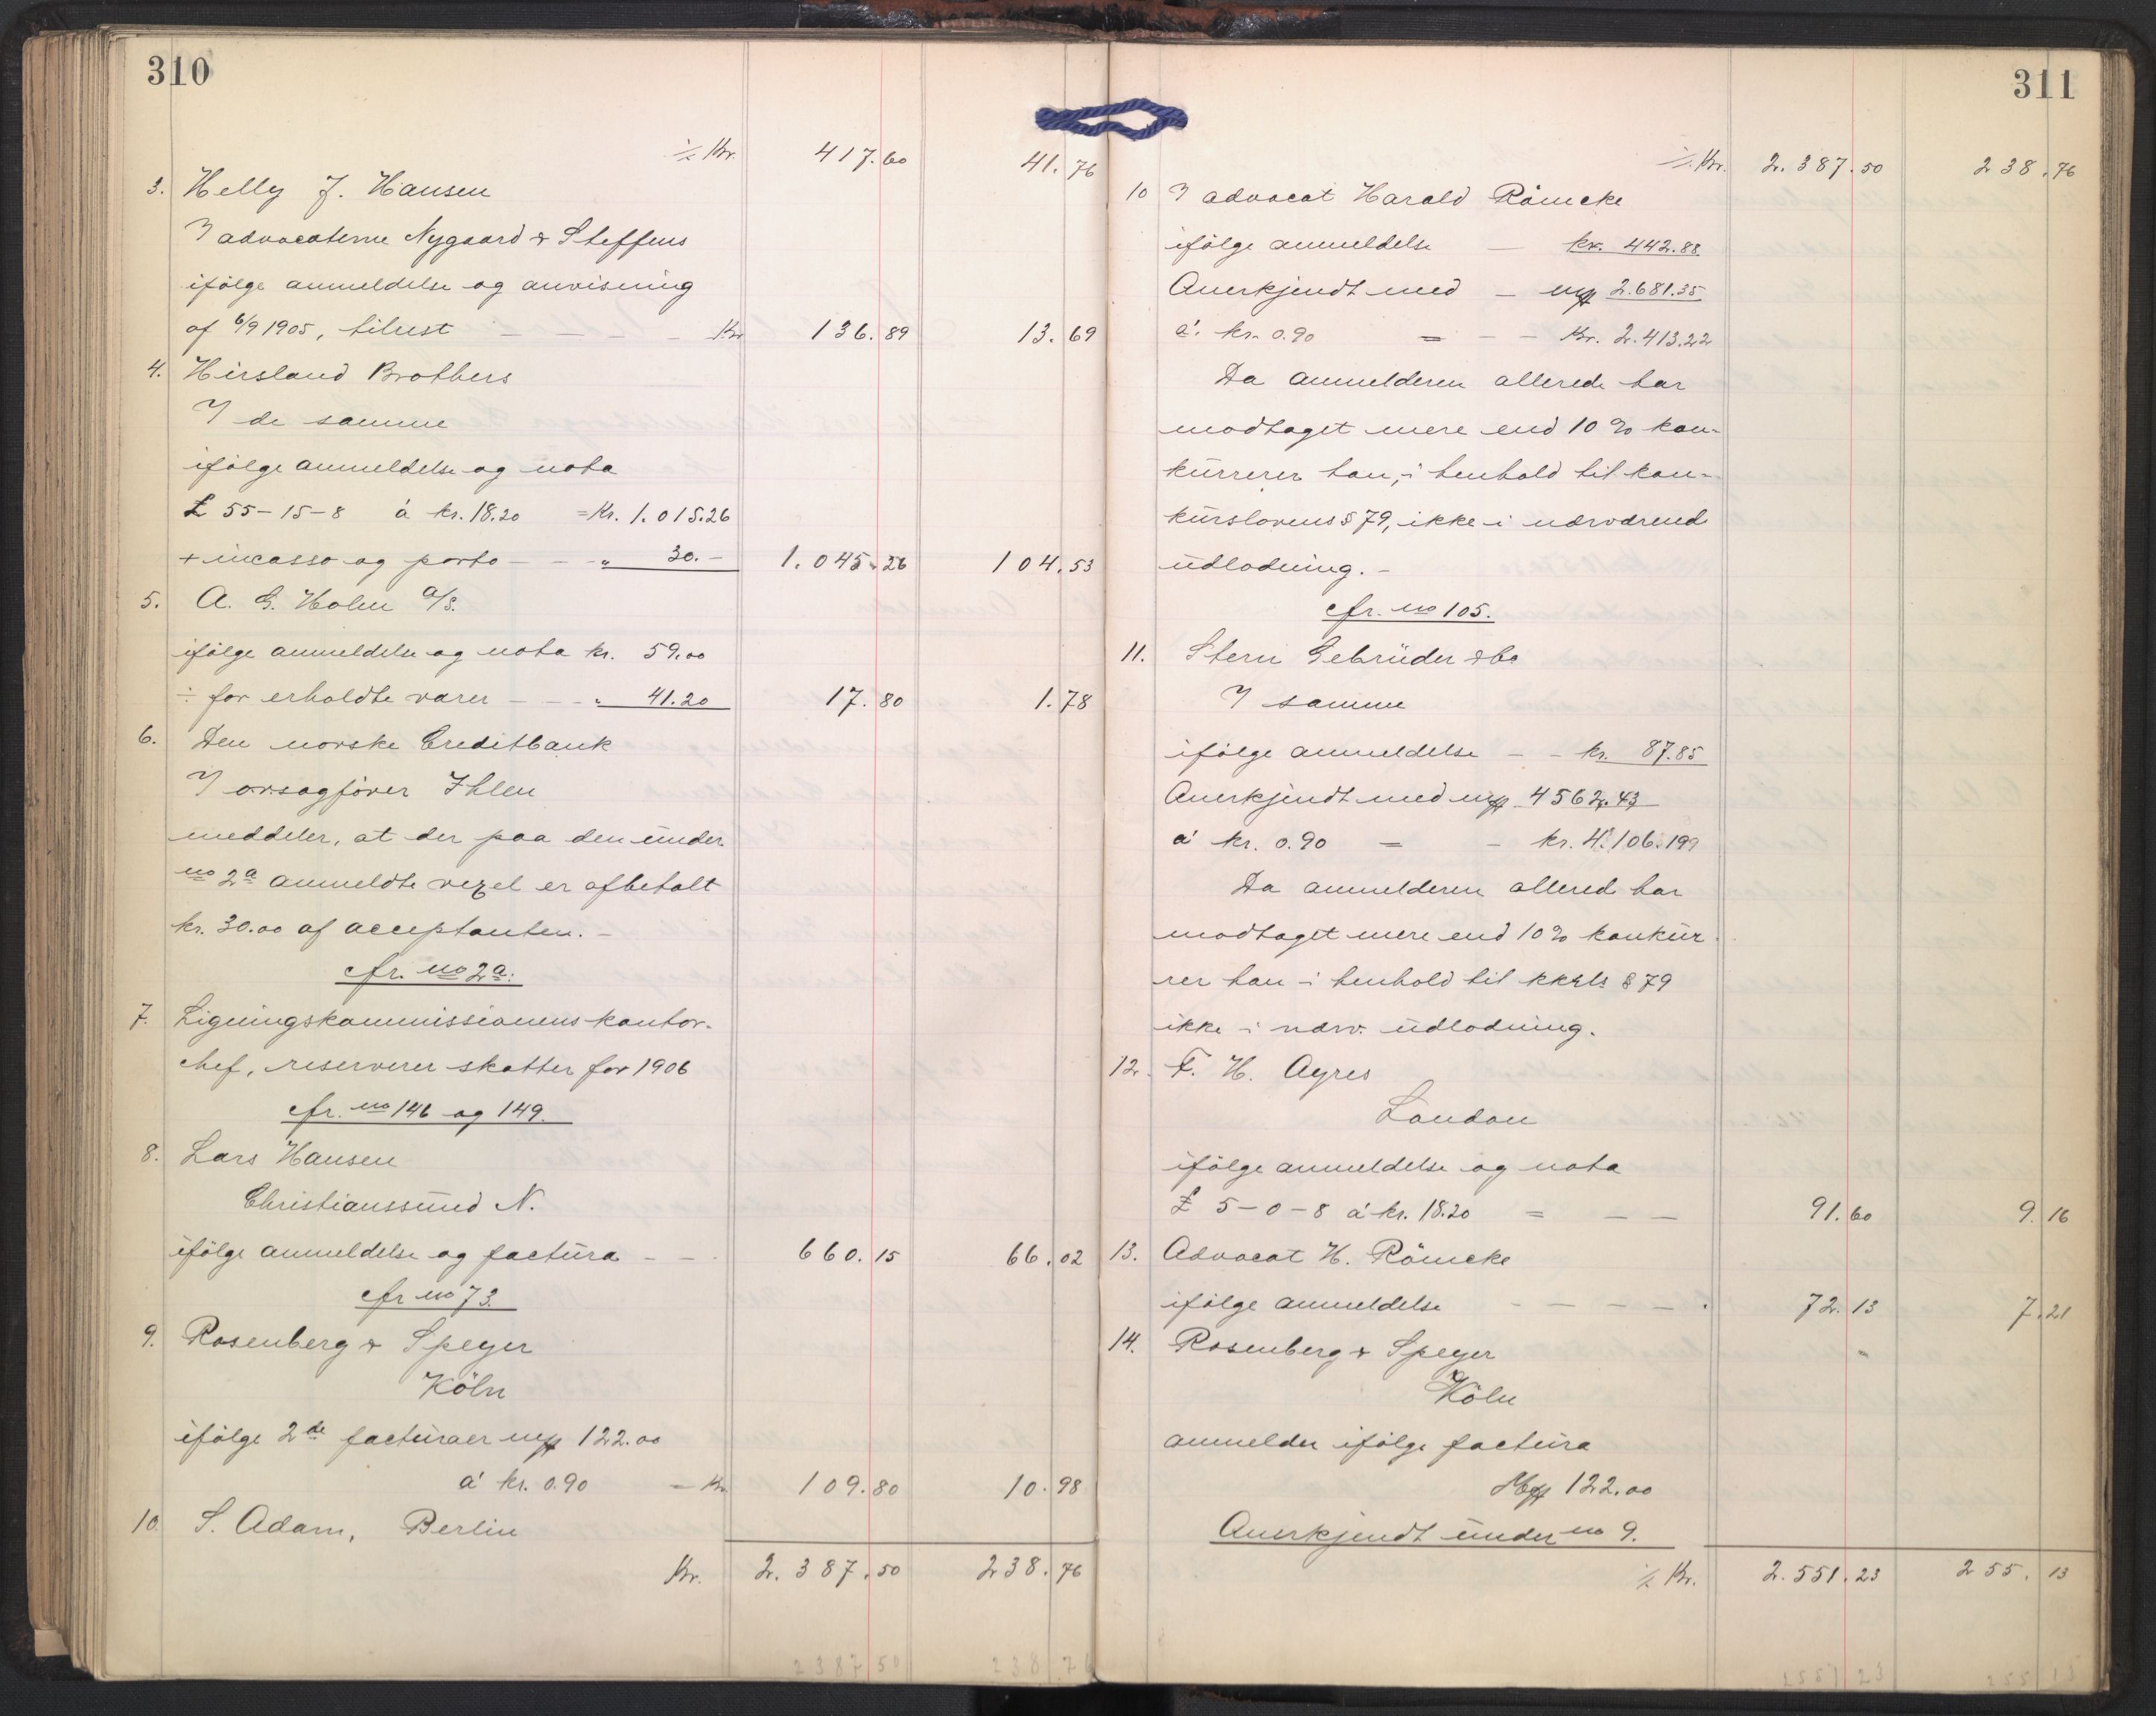 310
⁒ Kr. 417.60 41.76
3. Helly J. Hansen
V advocaterne Nygaard & Steffens
ifölge anmeldelse og anvisning
af 6/9 1905, tilrest — — — — Kr. 136.89 13.69
4. Hirsland Brothers
V de samme
ifölge anmeldelse og nota
£ 55-15-8 á kr. 18.20 = Kr. 1.015.26
+ incasso og porto — — „ 30.— 1.045.26 104.53
5. A. G. Holm A/S.
ifölge anmeldelse og nota kr. 59.00
÷ for erholdte varer — — „ 41.20 17.80 1.78
6. Den norske Creditbank
V orsagförer Ihlen
meddeler, at der paa den under
no 2a anmeldte vexel er afbetalt
kr. 30.00 af acceptanten. —
cfr. no 2a.
7. Ligningskommissionens kontor-
chef, reserverer skatter for 1906
cfr. no 146 og 149.
8. Lars Hansen
Christianssund N.
ifölge anmeldelse og factura — — 660.15 66.02
cfr no 73.
9. Rosenberg & Speyer
Köln
ifölge 2de facturaer mƒ 122.00
á kr. 0.90 — Kr. 109.80 10.98
10. S. Adam, Berlin
Kr. 2.387.50 238.76
2387 50 238 76
311
⁒ Kr. 2.387.50 238.76
10 V advocat Harald Römcke
ifölge anmeldelse — kr. 442.88
Anerkjendt med — mƒ 2.681.35
á. kr. 0.90 = — — Kr. 2.413.22
Da anmelderen allerede har
modtaget mere end 10 % kon-
kurrerer han, i henhold til kon-
kurslovens § 79, ikke i nærværende
udlodning. —
cfr. no 105.
11. Stern Gebrüder & Co
V samme
ifölge anmeldelse — — kr. 87.85
Anerkjendt med mƒ 4562.43
á kr. 0.90 = — kr. 4.106.19
Da anmelderen allered har
modtaget mere end 10 % konkur-
rer han i henhold til kksls § 79
ikke i nærv. udlodning.
12. F. H. Ayres
London
ifölge anmeldelse og nota
£ 5-0-8 á kr. 18.20 = — — 91.60 9.16
13. Advocat H. Römcke
ifölge anmeldelse — — — — 72.13 7.21
14. Rosenberg & Speyer
Köln
anmelder ifölge factura
Mƒ 122.00
Anerkjendt under no 9.
⁒ Kr. 2.551.23 255.13
2551 23 255 13